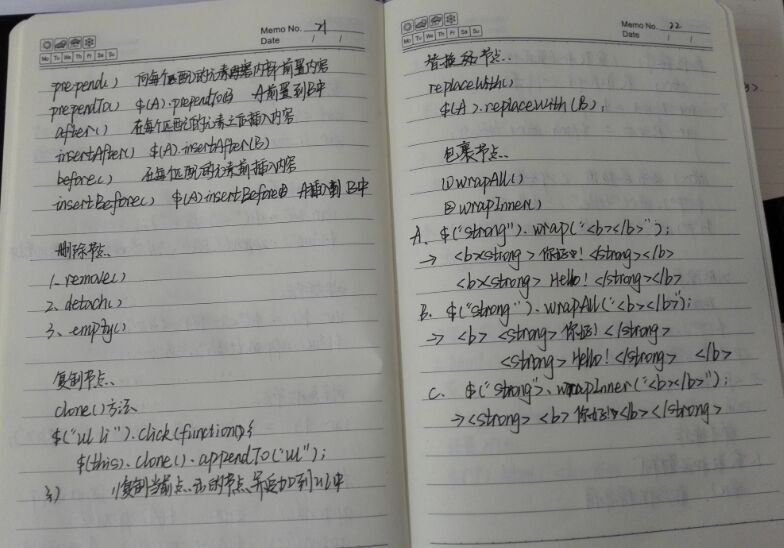 Memo No. 21
Mo Tu We Th Fr Sa Su
Date / /
prepend() 向每个匹配的元素内部前置内容
prependTo() $(A).prependTo(B) A前置到B中
after() 在每个匹配的元素之后插入内容
insertAfter() $(A).insertAfter(B)
before() 在每个匹配的元素前插入内容
insertBefore() $(A).insertBefore(B) A插到B中
删除节点
1. remove()
2. detach()
3. empty()
复制节点
clone()方法
$("ul li").click(function(){
$(this).clone().appendTo("ul");
}) //复制当前点击的节点,并追加到ul中
Memo No. 22
Mo Tu We Th Fr Sa Su
Date / /
替换节点
replaceWith()
$(A).replaceWith(B);
包裹节点
①wrapAll()
②wrapInner()
A. $("strong").wrap("<b></b>");
→ <b><strong>你好!</strong></b>
<b><strong>Hello!</strong></b>
B. $("strong").wrapAll("<b></b>");
→ <b><strong>你好!</strong>
<strong>Hello!</strong> </b>
C. $("strong").wrapInner("<b></b>");
→<strong><b>你好!</b></strong>